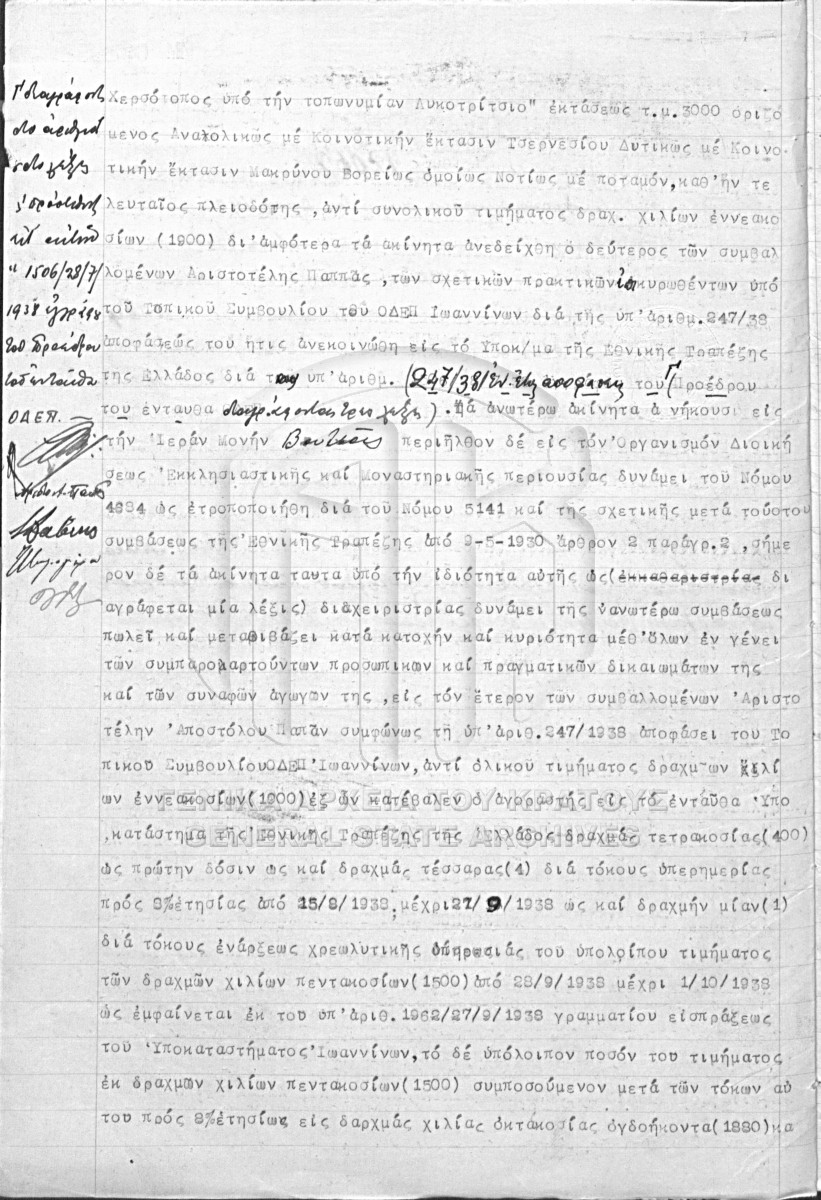 Χερσότοπος ὑπό τήν τοπωνυμίαν Λυκοτρίτσιο" ἐκτάσεως τ.μ.3000 ὁριζό
μενος Ἀνατολικῶς μέ Κοινοτικήν ἔκτασιν Τσερνεσίου Δυτικῶς μέ Κοινο-
τικήν ἔκτασιν Μακρύνου Βορείως ὁμοίως Νοτίως μέ ποταμόν,καθ'ἥν τε
λευταῖος πλειοδότης ,ἀντί συνολικοῦ τιμήματος δραχ. χιλίων ἐννεακο
σίων (1900) δι'ἀμφότερα τά ἀκίνητα ἀνεδείχθη ὁ δεύτερος τῶν συμβαλ
λομένων Ἀριστοτέλης Παππᾶς ,τῶν σχετικῶν πρακτικῶν ἐπικυρωθέντων ὑπό
τοῦ Τοπικοῦ Συμβουλίου τοῦ ΟΔΕΠ Ιωαννίνων διά τῆς ὑπ'ἀριθμ.247/38
ἀποφάσεώς του ἥτις ἀνεκοινώθη εἰς τό Υποκ/μα τῆς Ἐθνικῆς Τραπέζης
τῆς Ἑλλάδος διά της ὑπ'ἀριθμ. (247/38 ἀποφάσεως τοῦ Προέδρου
του ἐνταυθα διαγράφονται τρεις λέξεις). Τά ἀνωτέρω ἀκίνητα ἀνήκουσι εἰς
τήν Ἱεράν Μονήν περιῆλθον δέ εἰς τόν Ὀργανισμόν Διοική
σεως Ἐκκλησιαστικῆς καί Μοναστηριακῆς περιουσίας δυνάμει τοῦ Νόμου
4684 ὡς ἐτροποποιήθη διά τοῦ Νόμου 5141 καί τῆς σχετικῆς μετά τούοτου
συμβάσεως τῆς Ἐθνικῆς Τραπέζης ἀπό 2-5-1930 ἄρθρον 2 παράγρ.2 ,σήμε
ρον δέ τά ἀκίνητα ταυτα ὑπό τήν ἰδιότητα αὐτῆς ὡς(ἐκκαθαριστρίας δι
αγράφεται μία λέξις) διαχειριστρίας δυνάμει τῆς ἀνωτέρω συμβάσεως
πωλεῖ καί μεταβιβάζει κατά κατοχήν καί κυριότητα μέθ'ὅλων ἐν γένει
τῶν συμπαρομαρτούντων προσωπικων καί πραγματικῶν δικαιωμάτων της
καί τῶν συναφῶν ἀγωγων της ,εἰς τόν ἕτερον των συμβαλλομένων Ἀριστο
τέλην Ἀποστόλου Παπᾶν συμφώνως τῇ ὑπ'ἀριθ.247/1938 ἀποφάσει του Το
πικοῦ ΣυμβουλίουΟΔΕΠ Ἰωαννίνων,ἀντί ὁλικοῦ τιμήματος δραχμ-ων χιλί
ων ἐννεακοσίων(1900)ἐξ ὧν κατέβαλεν ὁ ἀγοραστής εἰς τό ἐνταῦθα Ὑπο
,κατάστημα τῆς Ἐθνικῆς Τραπέζης τῆς Ἑλλάδος δραχμάς τετρακοσίας(400)
ὡς πρώτην δόσιν ως καί δραχμάς τέσσαρας(4) διά τόκους ὑπερημερίας
πρός 8%ἐτησίας ἀπό 15/8/1938 μέχρι27/ 9/1938 ὡς καί δραχμήν μίαν(1)
διά τόκους ἐνάρξεως χρεωλυτικῆς ὑπηρεσιάς του ὑπολοίπου τιμήματος
τῶν δραχμῶν χιλίων πεντακοσίων(1500)ἀπό 28/9/1938 μέχρι 1/10/1938
ὡς ἐμφαίνεται ἐκ του ὑπ'ἀριθ.1962/27/9/1938 γραμματίου εἰσπράξεως
τοῦ Ὑποκαταστήματος Ἰωαννίνων,τό δέ ὑπόλοιπον ποσόν του τιμήματος
ἐκ δραχμων χιλίων πεντακοσίων(1500) συμποσούμενον μετά τῶν τόκων αὐ
του πρός 8%ἐτησίως εἰς δαρχμάς χιλίας ὀκτακοσίας ὀγδοήκοντα(1880)κα
"1506/28/7/
1938
τοῦ Προέδρου
τοῦ ἐνταῦθα
ΟΔΕΠ.
ΓΕΝΙΚΑ ΑΡΧΕΙΑ ΤΟΥ ΚΡΑΤΟΥΣ
GENERAL STATE ARCHIVES